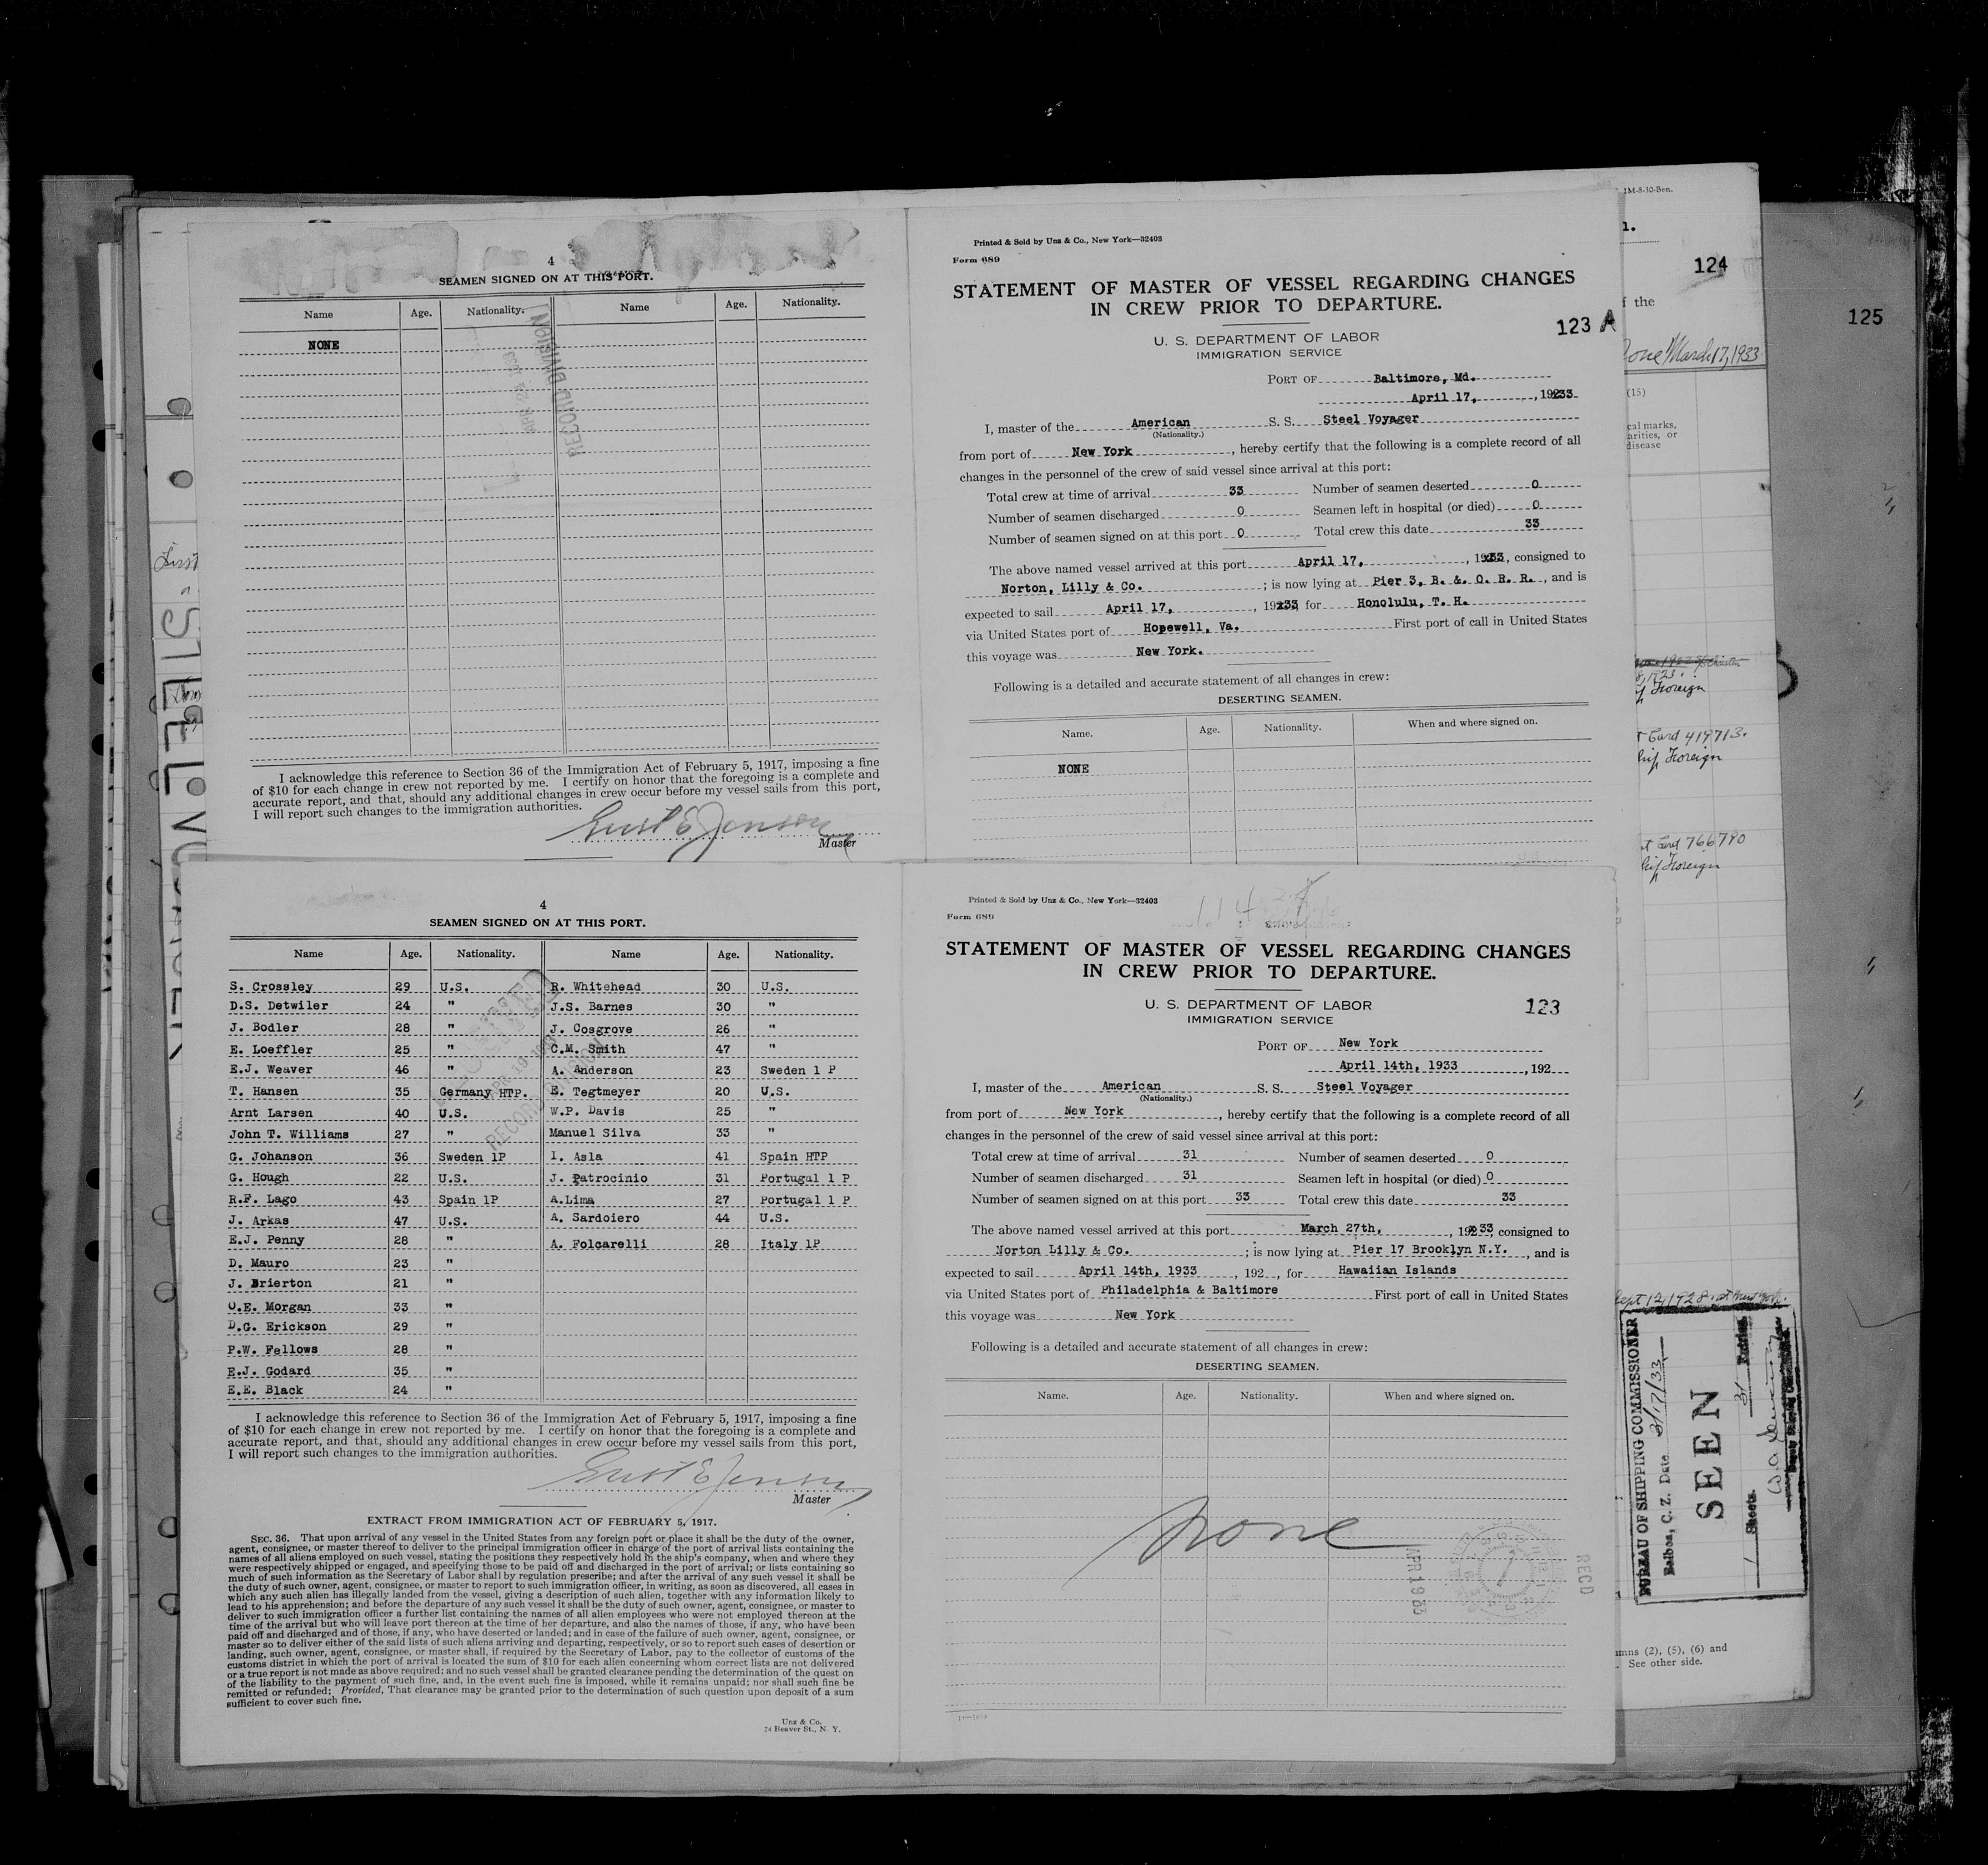 4
SEAMEN SIGNED ON AT THIS PORT.
Name Age. Nationality. Name Age. Nationality.
NONE
RECORD DIVISION
I acknowledge this reference to Section 36 of the Immigration Act of February 5, 1917, imposing a fine
of $10 for each change in crew not reported by me. I certify on honor that the foregoing is a complete and
accurate report, and that, should any additional changes in crew occur before my vessel sails from this port,
I will report such changes to the immigration authorities.
Gust E Jonson
Master
Printed & Sold by Unz & Co., New York—32403
Form 689
STATEMENT OF MASTER OF VESSEL REGARDING CHANGES
IN CREW PRIOR TO DEPARTURE.
123 A
U. S. DEPARTMENT OF LABOR
IMMIGRATION SERVICE
PORT OF Baltimore, Md.
April 17, , 1933
I, master of the American S. S. Steel Voyager
(Nationality.)
from port of New York , hereby certify that the following is a complete record of all
changes in the personnel of the crew of said vessel since arrival at this port:
Total crew at time of arrival 33 Number of seamen deserted 0
Number of seamen discharged 0 Seamen left in hospital (or died) 0
Number of seamen signed on at this port 0 Total crew this date 33
The above named vessel arrived at this port April 17, , 1933, consigned to
Norton, Lilly & Co. ; is now lying at Pier 3, B. & O. R. R. , and is
expected to sail April 17, , 1933 for Honolulu, T. H.
via United States port of Hopewell, Va. First port of call in United States
this voyage was New York.
Following is a detailed and accurate statement of all changes in crew:
DESERTING SEAMEN.
Name. Age. Nationality. When and where signed on.
NONE
4
SEAMEN SIGNED ON AT THIS PORT.
Name Age. Nationality. Name Age. Nationality.
S. Crossley 29 U.S. R. Whitehead 30 U.S.
D.S. Detwiler 24 " J.S. Barnes 30 "
J. Bodler 28 " J. Cosgrove 26 "
E. Loeffler 25 " C.M. Smith 47 "
E.J. Weaver 46 " A. Anderson 23 Sweden 1 P
T. Hansen 35 Germany HTP. E. Tegtmeyer 20 U.S.
Arnt Larsen 40 U.S. W.P. Davis 25 "
John T. Williams 27 " Manuel Silva 33 "
G. Johanson 36 Sweden 1P I. Asla 41 Spain HTP
G. Hough 22 U.S. J. Patrocinio 31 Portugal 1 P
R.F. Lago 43 Spain 1P A.Lima 27 Portugal 1 P
J. Arkas 47 U.S. A. Sardoiero 44 U.S.
E.J. Penny 28 " A. Folcarelli 28 Italy 1P
D. Mauro 23 "
J. Brierton 21 "
O.E. Morgan 33 "
D.G. Erickson 29 "
P.W. Fellows 28 "
E.J. Godard 35 "
E.E. Black 24 "
I acknowledge this reference to Section 36 of the Immigration Act of February 5, 1917, imposing a fine
of $10 for each change in crew not reported by me. I certify on honor that the foregoing is a complete and
accurate report, and that, should any additional changes in crew occur before my vessel sails from this port,
I will report such changes to the immigration authorities.
Gust E Jonson
Master
EXTRACT FROM IMMIGRATION ACT OF FEBRUARY 5, 1917.
SEC. 36. That upon arrival of any vessel in the United States from any foreign port or place it shall be the duty of the owner,
agent, consignee, or master thereof to deliver to the principal immigration officer in charge of the port of arrival lists containing the
names of all aliens employed on such vessel, stating the positions they respectively hold in the ship's company, when and where they
were respectively shipped or engaged, and specifying those to be paid off and discharged in the port of arrival; or lists containing so
much of such information as the Secretary of Labor shall by regulation prescribe; and after the arrival of any such vessel it shall be
the duty of such owner, agent, consignee, or master to report to such immigration officer, in writing, as soon as discovered, all cases in
which any such alien has illegally landed from the vessel, giving a description of such alien, together with any information likely to
lead to his apprehension; and before the departure of any such vessel it shall be the duty of such owner, agent, consignee, or master to
deliver to such immigration officer a further list containing the names of all alien employees who were not employed thereon at the
time of the arrival but who will leave port thereon at the time of her departure, and also the names of those, if any, who have been
paid off and discharged and of those, if any, who have deserted or landed; and in case of the failure of such owner, agent, consignee, or
master so to deliver either of the said lists of such aliens arriving and departing, respectively, or so to report such cases of desertion or
landing, such owner, agent, consignee, or master shall, if required by the Secretary of Labor, pay to the collector of customs of the
customs district in which the port of arrival is located the sum of $10 for each alien concerning whom correct lists are not delivered
or a true report is not made as above required; and no such vessel shall be granted clearance pending the determination of the quest on
of the liability to the payment of such fine, and, in the event such fine is imposed, while it remains unpaid; nor shall such fine be
remitted or refunded; Provided, That clearance may be granted prior to the determination of such question upon deposit of a sum
sufficient to cover such fine.
Unz & Co.
24 Beaver St., N. Y.
Printed & Sold by Unz & Co., New York—32403
Form 689
STATEMENT OF MASTER OF VESSEL REGARDING CHANGES
IN CREW PRIOR TO DEPARTURE.
U. S. DEPARTMENT OF LABOR
123
IMMIGRATION SERVICE
PORT OF New York
April 14th, 1933 , 192
I, master of the American S. S. Steel Voyager
(Nationality.)
from port of New York , hereby certify that the following is a complete record of all
changes in the personnel of the crew of said vessel since arrival at this port:
Total crew at time of arrival 31 Number of seamen deserted 0
Number of seamen discharged 31 Seamen left in hospital (or died) 0
Number of seamen signed on at this port 33 Total crew this date 33
The above named vessel arrived at this port March 27th, , 1933 consigned to
Norton Lilly & Co. ; is now lying at Pier 17 Brooklyn N.Y. , and is
expected to sail April 14th, 1933 , 192 , for Hawaiian Islands
via United States port of Philadelphia & Baltimore First port of call in United States
this voyage was New York
Following is a detailed and accurate statement of all changes in crew:
DESERTING SEAMEN.
Name. Age. Nationality. When and where signed on.
none
APR 1933
RECD
1M-8-30-Ben.
124
f the
March 17, 1933
(15)
cal marks,
arities, or
disease
Foreign
Card 419713.
Foreign
766790
Foreign
Sept 12, 1928 at New York.
BUREAU OF SHIPPING COMMISSIONER
Balboa, C. Z. Date 3/17/33
SEEN
1 Sheets. 31
mns (2), (5), (6) and
See other side.
125
First
STEEL VOYAGER